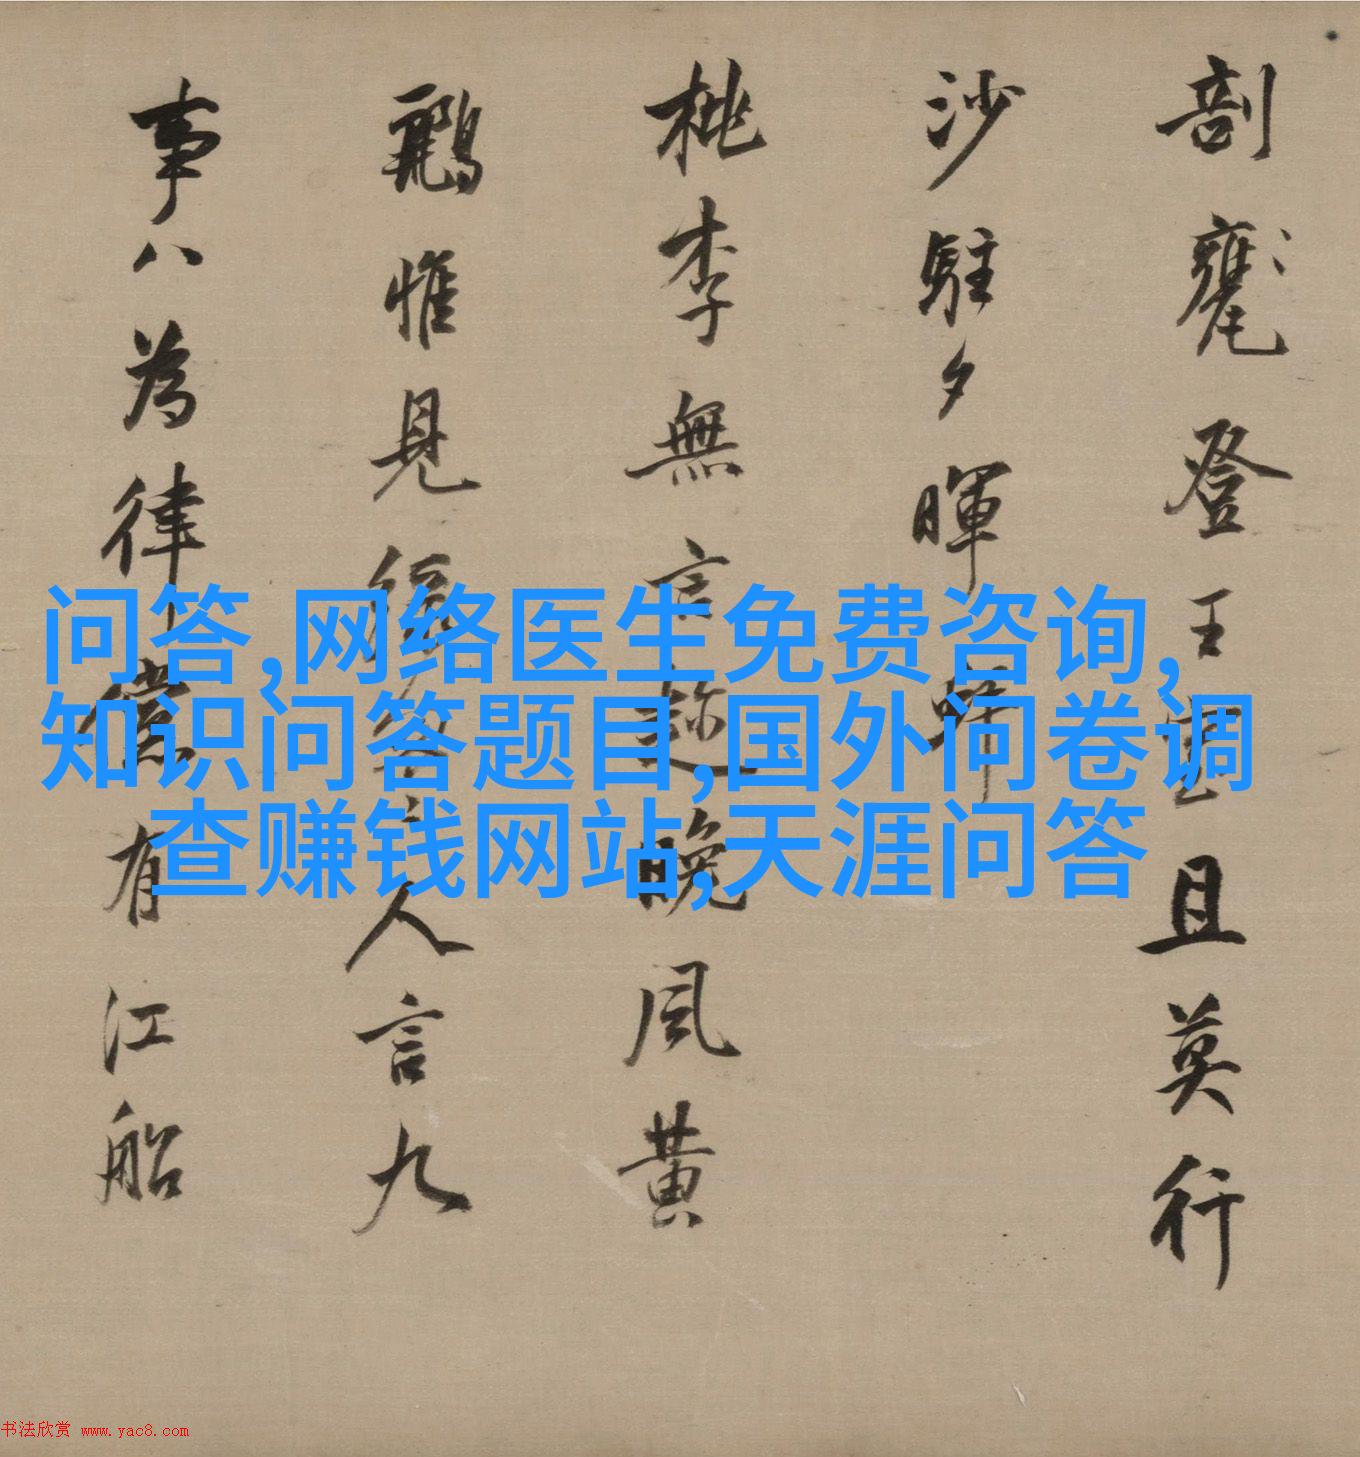 剖甕登王且莫行
沙駐夕暉
桃李無言晚風黃
鸝惟見人言九
事八為律儻有江船
问答,网络医生免费咨询,
知识问答题目,国外问卷调
查赚钱网站,天涯问答
书法欣赏 www.yac8.com